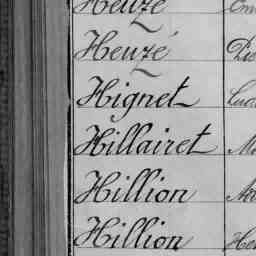 Heuzé
Heuzé
Hignet
Hillairet
Hillion
Hillion